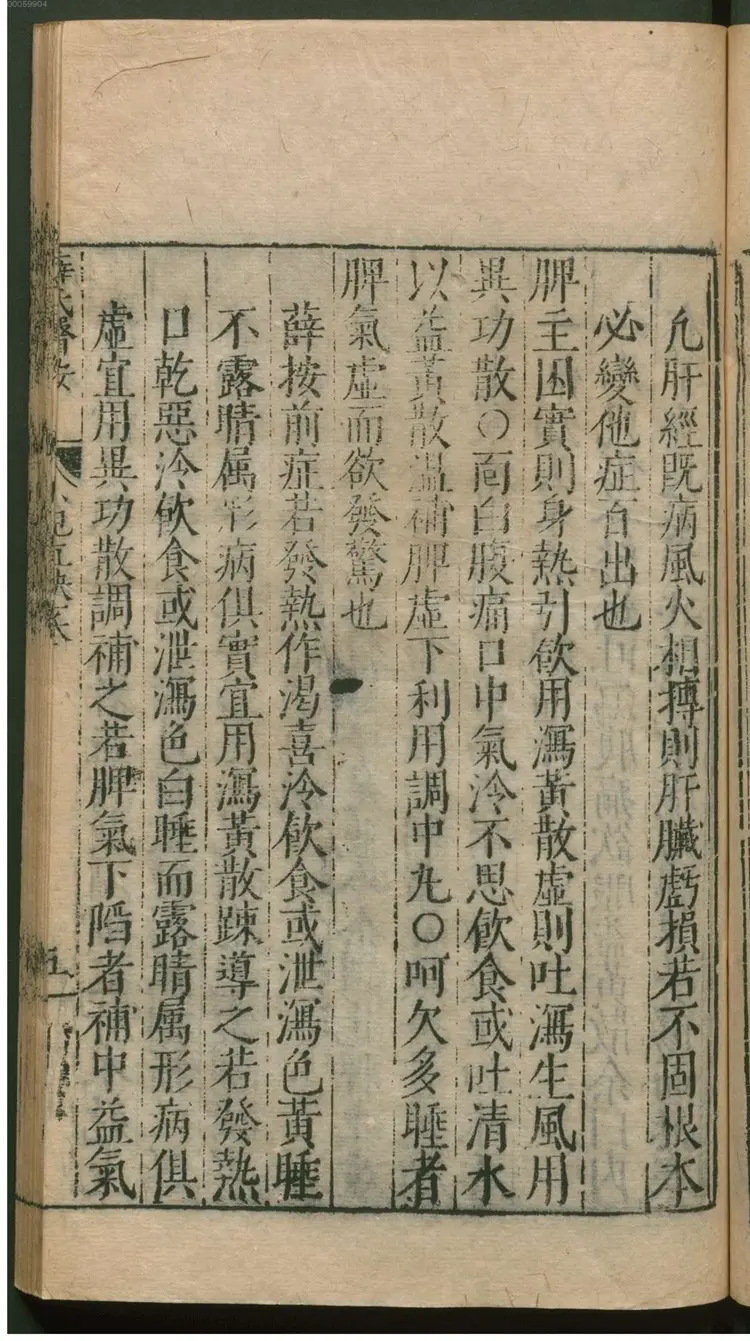 00059904
凢肝經既病風火相搏則肝臟虧損若不固根本
必變他症百出也
脾主困實則身熱引飲用瀉黃散虛則吐瀉生風用
異功散○面白腹痛口中氣冷不思飲食或吐清水
以益黃散温補脾虛下利用調中丸○呵欠多睡者
脾氣虛而欲發驚也
薛按前症若發熱作渴喜冷飲食或泄瀉色黃睡
不露睛属形病俱實宜用瀉黃散踈導之若發熱
口乾惡冷飲食或泄瀉色白睡而露睛属形病俱
虛宜用異功散調補之若脾氣下陷者補中益氣
薛氏醫按